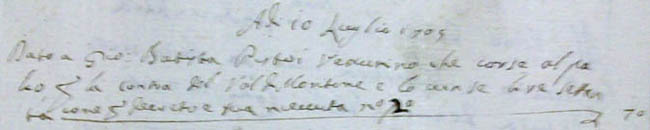 Adi 10 Luglio 1705
Dato a Gio: Batista Pistoi Vetturino che corse al pa
lio p la contra del Val di Montone e lo vinse lire setan
ta come p decreto e sua riceuta no 2o 70